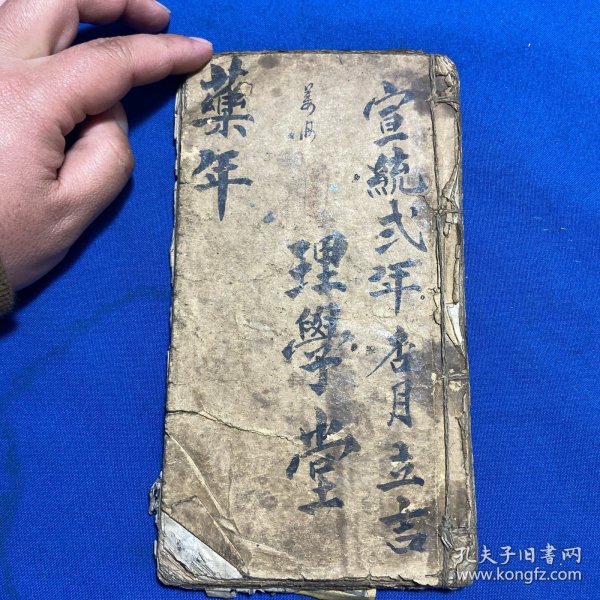 宣統弍年杏月立吉
理學堂
藥年
孔夫子旧書网
www.kongfz.com